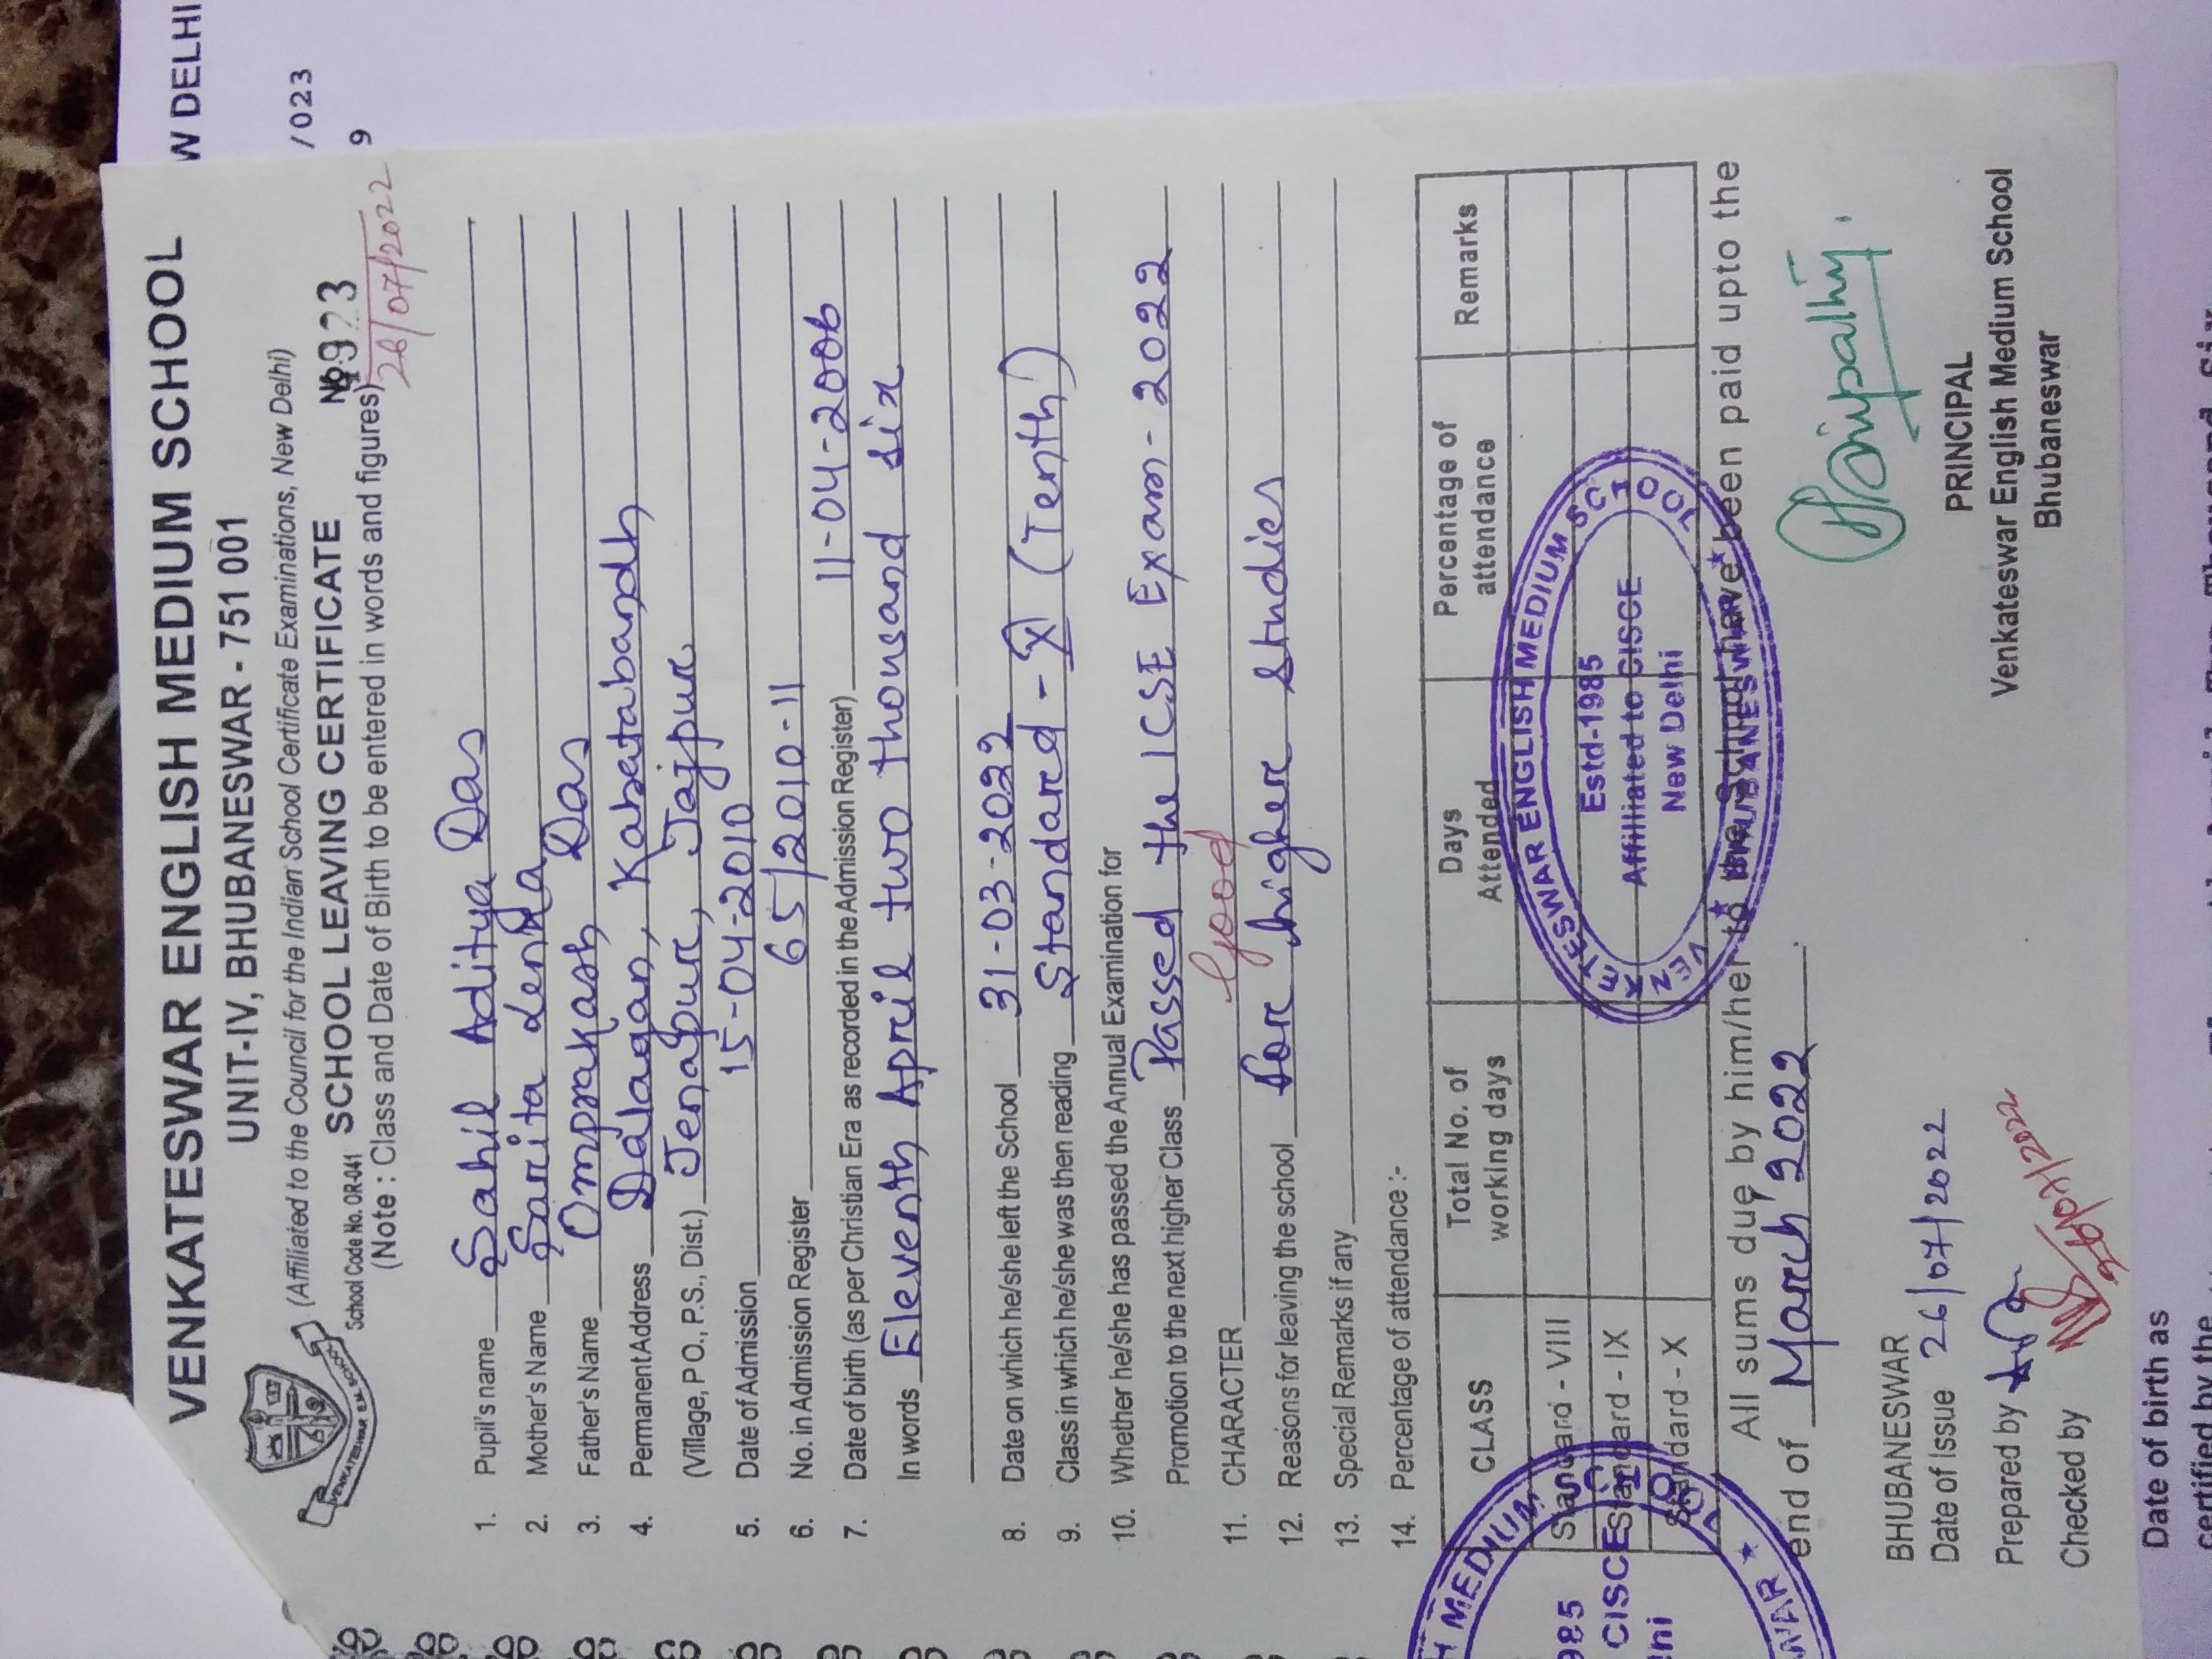 W DELHI
/023
9
VENKATESWAR ENGLISH MEDIUM SCHOOL
UNIT-IV, BHUBANESWAR - 751 001
(Affiliated to the Council for the Indian School Certificate Examinations, New Delhi)
School Code No. OR-041 SCHOOL LEAVING CERTIFICATE No 923
(Note : Class and Date of Birth to be entered in words and figures) 26/07/2022
VENKATESWAR E.M. SCHOOL
1. Pupil's name Sahil Aditya Das
2. Mother's Name Sarita Lenka
3. Father's Name Omprakash Das
4. Permanent Address Dalagan, Kabatabandh
(Village, P O., P.S., Dist.) Jenapur, Jajpur
5. Date of Admission 15-04-2010
6. No. in Admission Register 65/2010-11
7. Date of birth (as per Christian Era as recorded in the Admission Register) 11-04-2006
In words Eleventh April two thousand six
8. Date on which he/she left the School 31-03-2022
9. Class in which he/she was then reading Standard - X (Tenth)
10. Whether he/she has passed the Annual Examination for
Promotion to the next higher Class Passed the ICSE Exam-2022
11. CHARACTER Good
12. Reasons for leaving the school For higher studies
13. Special Remarks if any
14. Percentage of attendance :-
CLASS Total No. of working days Days Attended Percentage of attendance Remarks
Standard - VIII
Standard - IX
Standard - X
VENKATESWAR ENGLISH MEDIUM SCHOOL
Estd-1985
Affiliated to CISCE
New Delhi
★ BHUBANESWAR ★
H MEDIUM SCHOOL
985
CISCE
lhi
WAR ★
All sums due by him/her to the School have been paid upto the
end of March'2022.
BHUBANESWAR
Date of Issue 26/07/2022
Prepared by
Checked by 26/07/2022
Tripathy
PRINCIPAL
Venkateswar English Medium School
Bhubaneswar
Date of birth as
certified by the